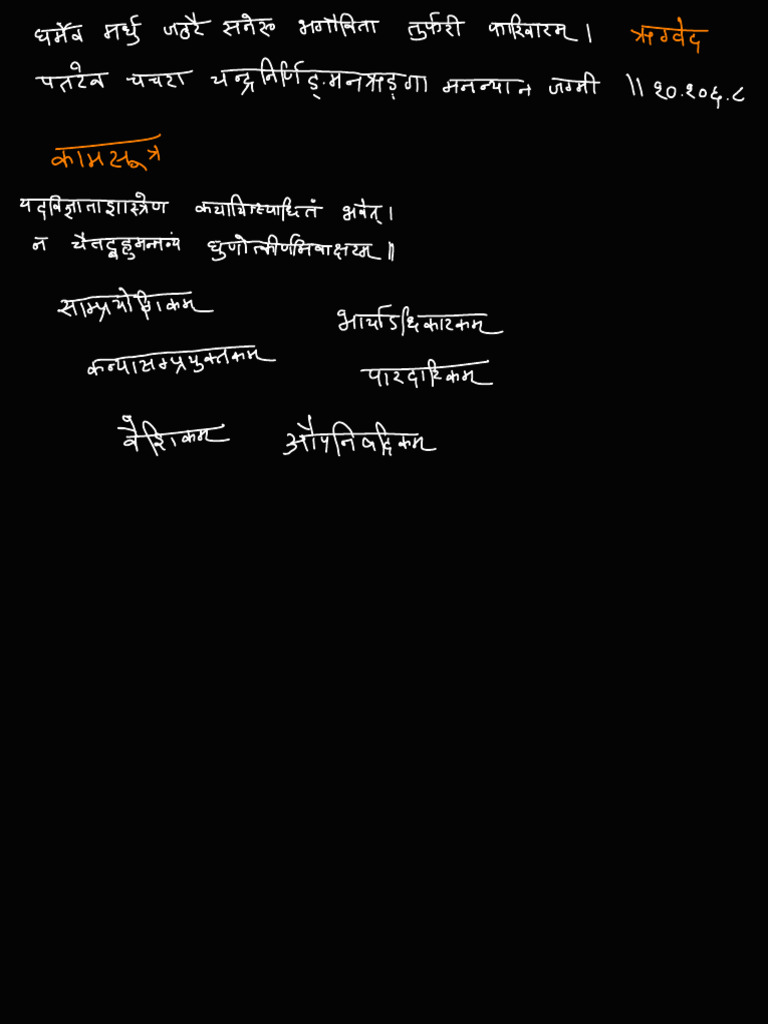 धर्मेव मर्धु जठरै सनेरू भगोविता तुर्फरी फारिवारम् । ऋग्वेद
पतरेव चचरा चन्द्रनिर्णिङ्.मनऋङ्गा मनन्यान जग्मी ॥ १०.१०६.८
कामसूत्र
यदविज्ञाताशास्त्रेण कयाचित्साधितं भवेत् ।
न चैतद्बहुमन्तव्यं धुणोत्कीर्णमिवाक्षरम् ॥
साम्प्रयोगिकम्
भार्याऽधिकारकम्
कन्यासम्प्रयुक्तकम्
पारदारिकम्
वैशिकम् औपनिषदिकम्